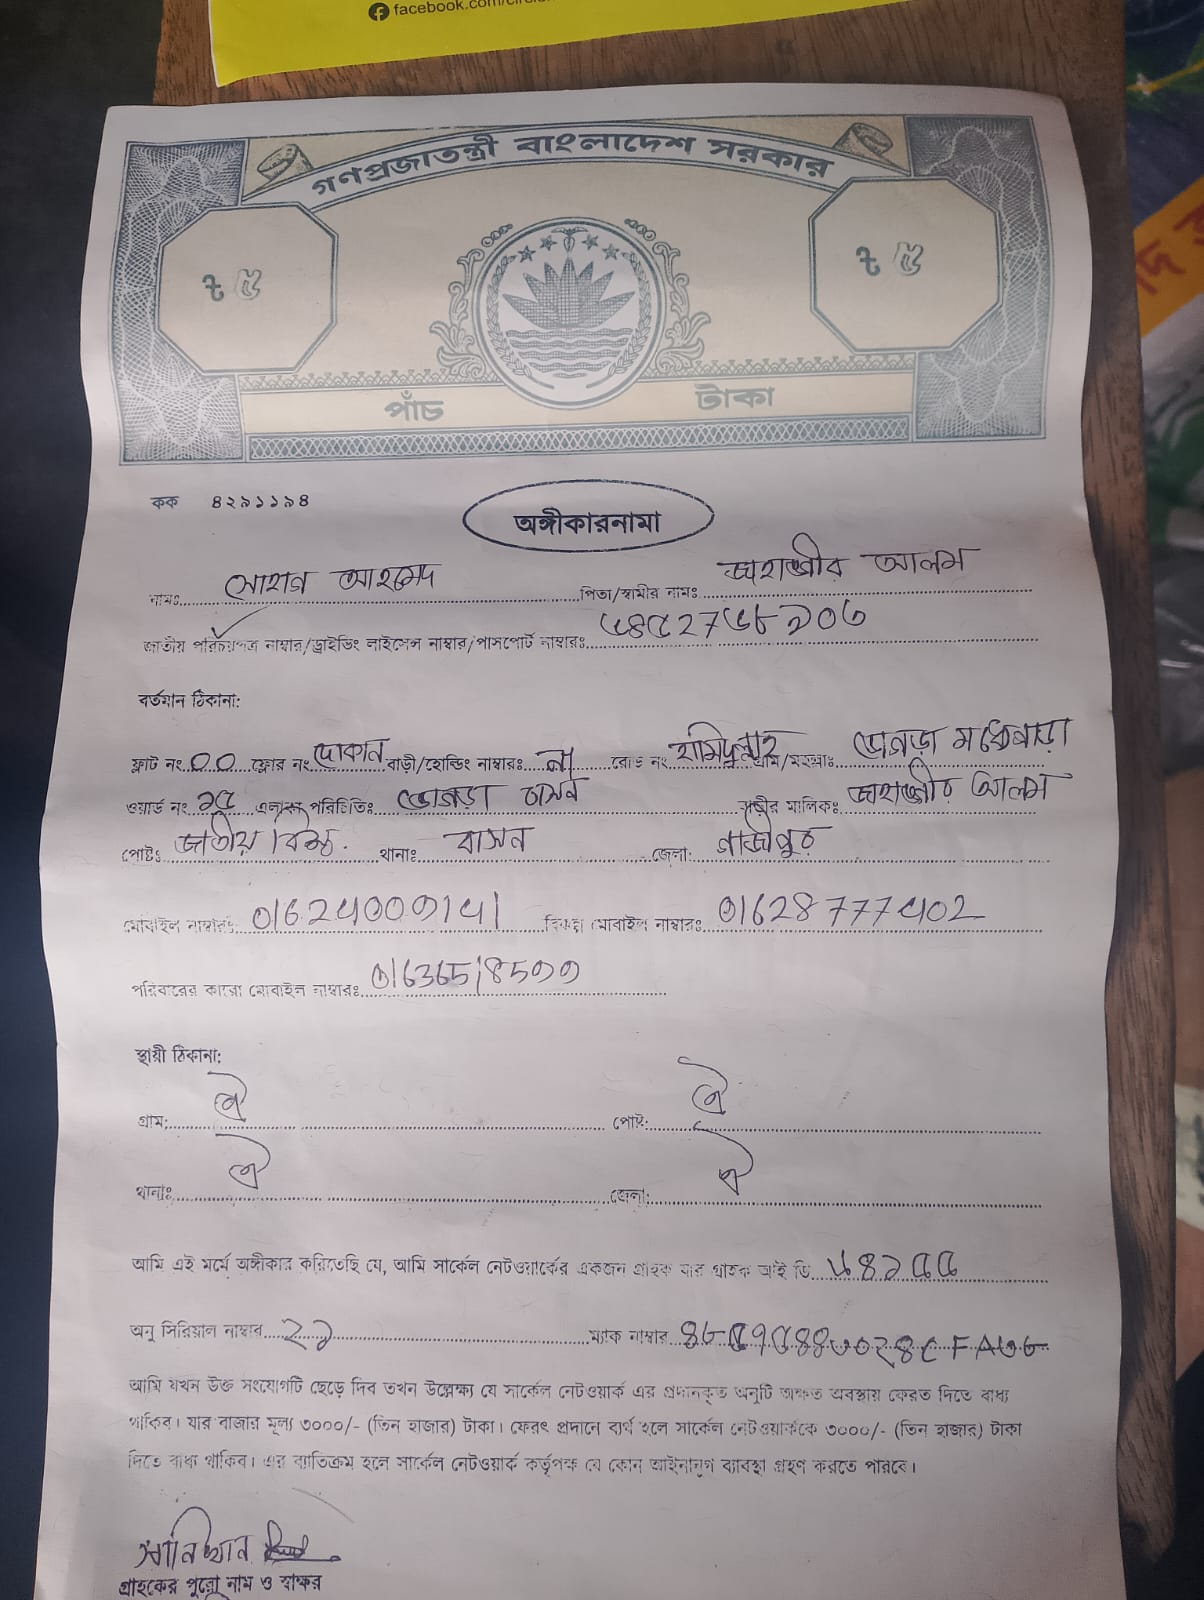 facebook.com/circle
গণপ্রজাতন্ত্রী বাংলাদেশ সরকার
৳ ৫ ৳ ৫
পাঁচ টাকা
কক ৪২৯১১৯৪
অঙ্গীকারনামা
নামঃ সোহাগ আহমেদ পিতা/স্বামীর নামঃ জাহাঙ্গীর আলম
জাতীয় পরিচয়পত্র নাম্বার/ড্রাইভিং লাইসেন্স নাম্বার/পাসপোর্ট নাম্বারঃ
বর্তমান ঠিকানা:
ফ্লাট নং ০০ ফ্লোর নং দোকান বাড়ী/হোল্ডিং নাম্বারঃ না রোড নং হামিদুল্লাহ গ্রাম/মহল্লাঃ ভোগড়া মধ্যেপাড়া
ওয়ার্ড নং ১৫ এলাকা পরিচিতিঃ ভোগড়া বাসন বাড়ীর মালিকঃ জাহাঙ্গীর আলম
পোষ্টঃ জাতীয় বিশ্ব. থানাঃ বাসন জেলা: গাজীপুর
মোবাইল নাম্বারঃ বিকল্প মোবাইল নাম্বারঃ 01628777402
পরিবারের কারো মোবাইল নাম্বারঃ
স্থায়ী ঠিকানা:
গ্রাম: ঐ পোষ্ট: ঐ
থানাঃ ঐ জেলা: ঐ
আমি এই মর্মে অঙ্গীকার করিতেছি যে, আমি সার্কেল নেটওয়ার্কের একজন গ্রাহক যার গ্রাহক আই ডি
অনু সিরিয়াল নাম্বার ২১ ম্যাক নাম্বার
আমি যখন উক্ত সংযোগটি ছেড়ে দিব তখন উল্লেক্ষ্য যে সার্কেল নেটওয়ার্ক এর প্রদানকৃত অনুটি অক্ষত অবস্থায় ফেরত দিতে বাধ্য
থাকিব। যার বাজার মূল্য ৩০০০/- (তিন হাজার) টাকা। ফেরৎ প্রদানে ব্যর্থ হলে সার্কেল নেটওয়ার্ককে ৩০০০/- (তিন হাজার) টাকা
দিতে বাধ্য থাকিব। এর ব্যতিক্রম হলে সার্কেল নেটওয়ার্ক কর্তৃপক্ষ যে কোন আইনানুগ ব্যবস্থা গ্রহণ করতে পারবে।
গ্রাহকের পুরো নাম ও স্বাক্ষর